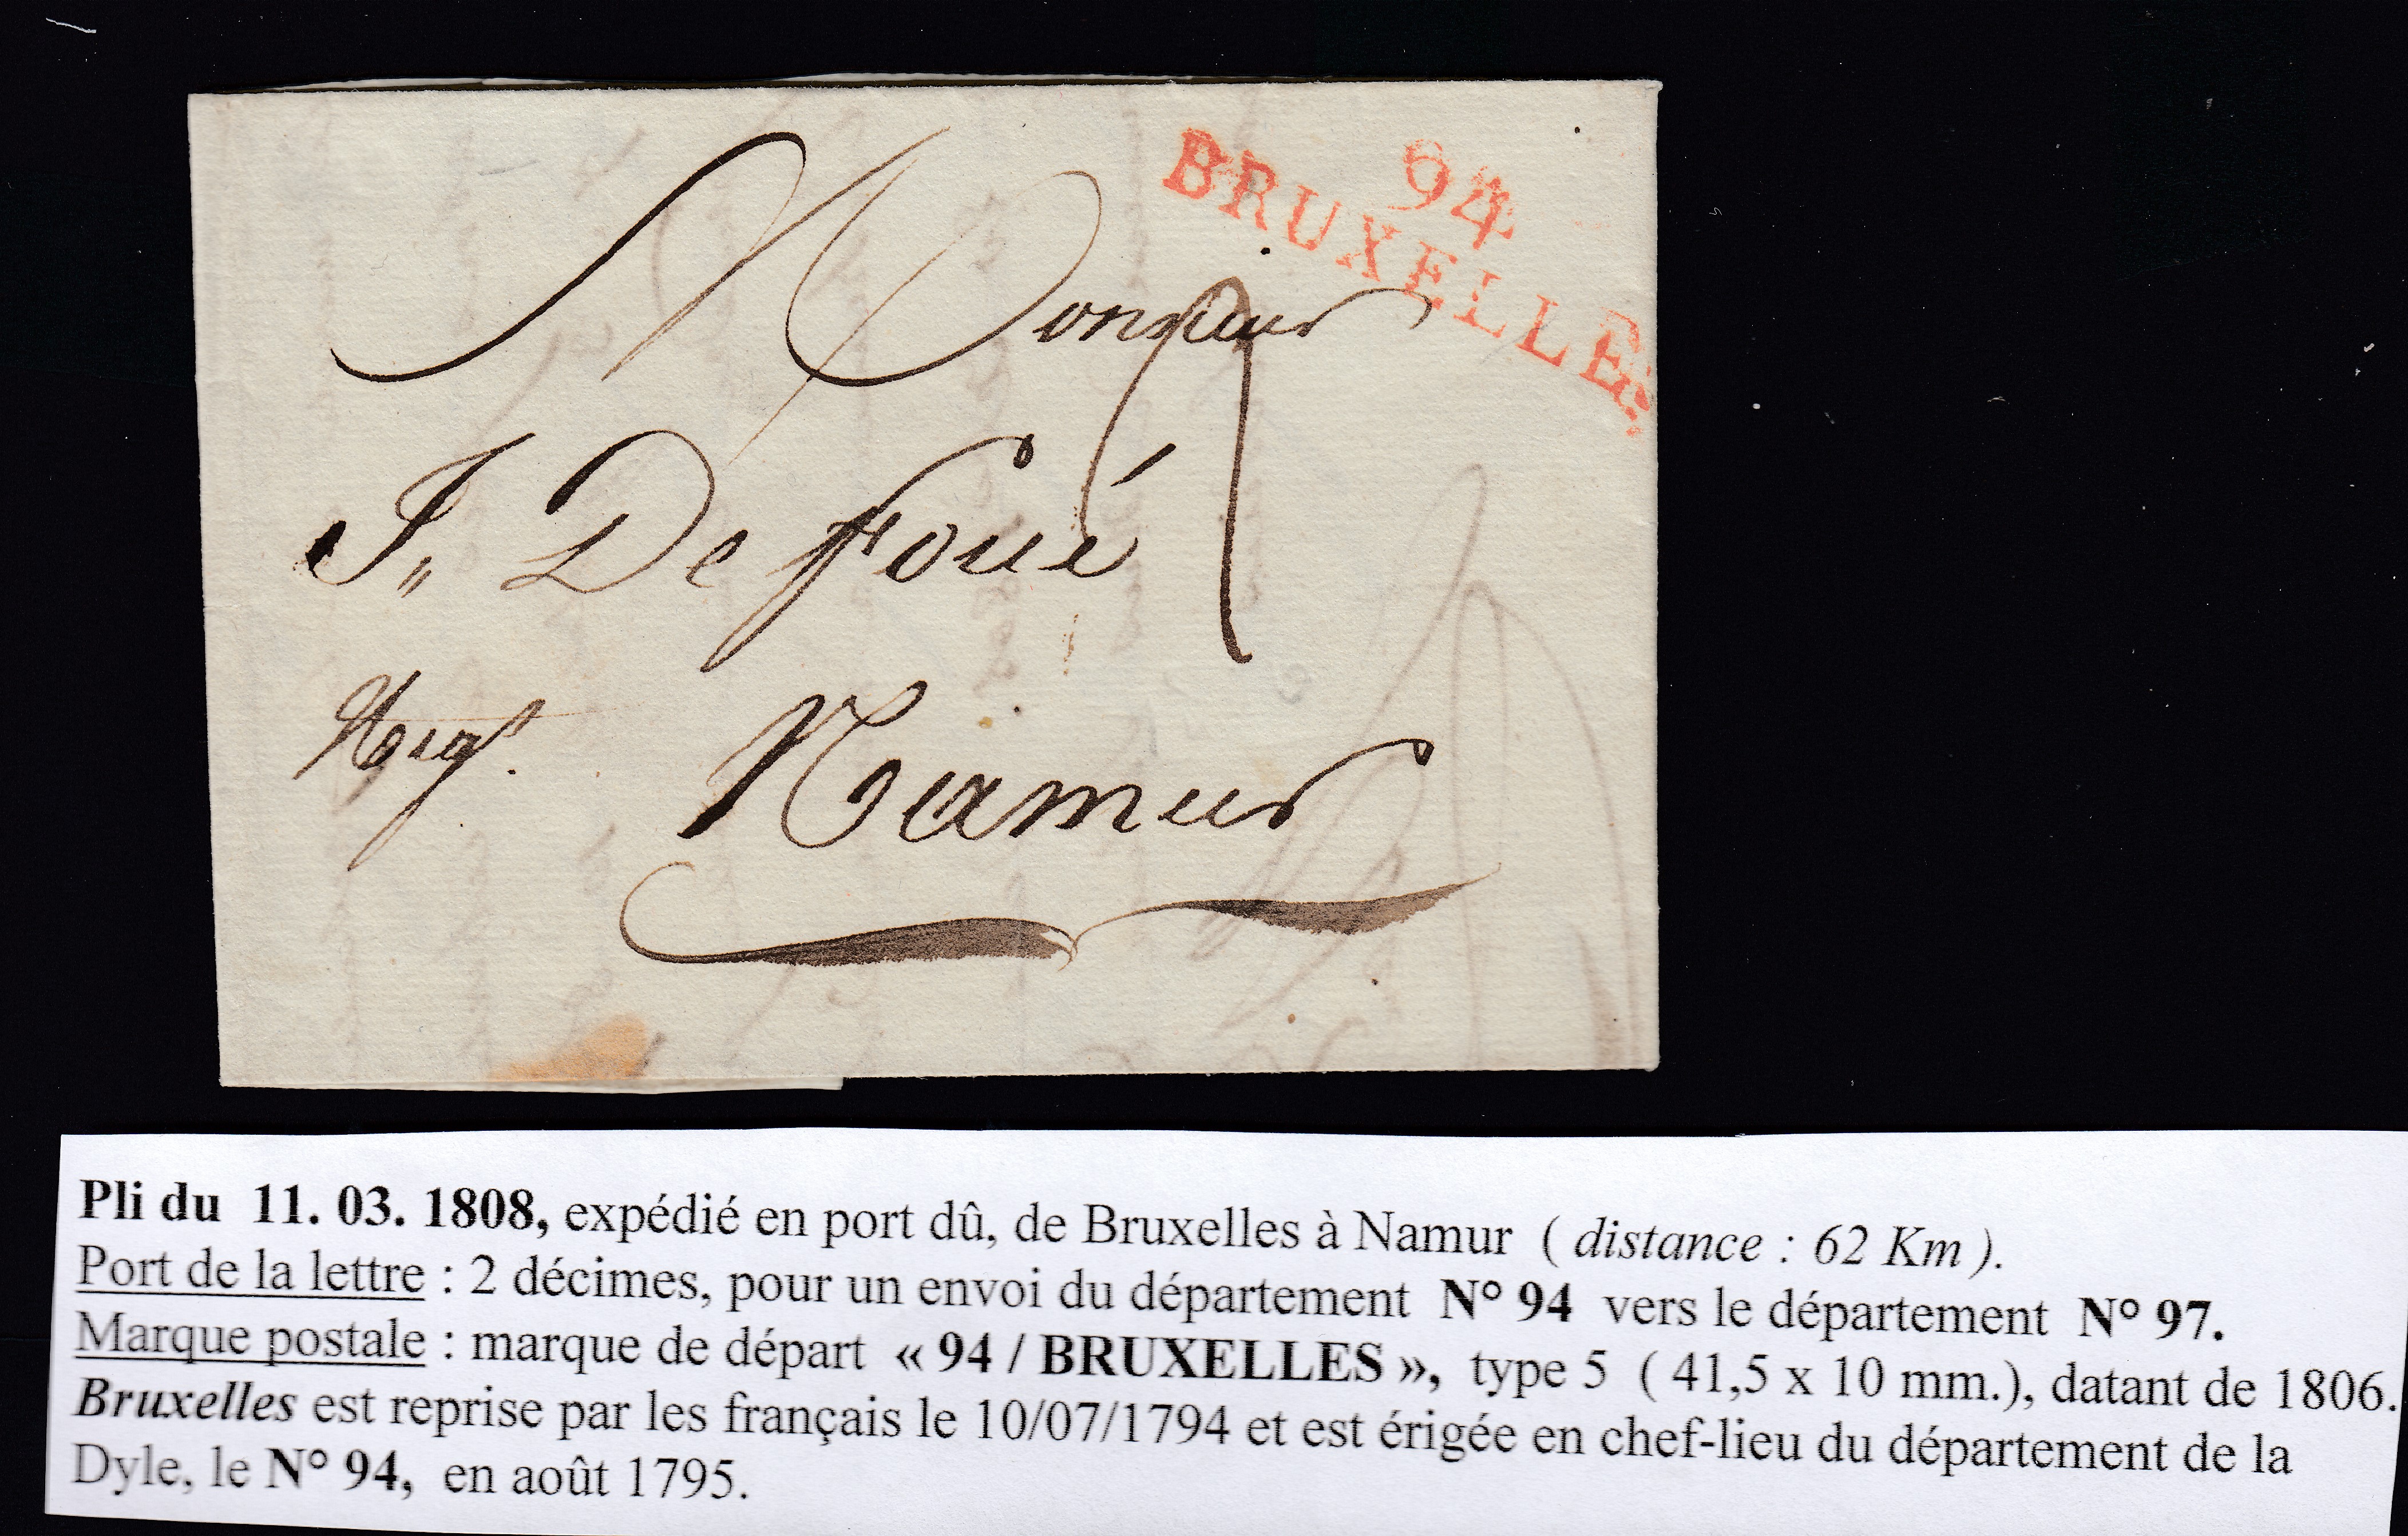 94
BRUXELLES
Monsieur
2
J. De Foué
Neg.t
Namur
Pli du 11. 03. 1808, expédié en port dû, de Bruxelles à Namur ( distance : 62 Km ).
Port de la lettre : 2 décimes, pour un envoi du département N° 94 vers le département N° 97.
Marque postale : marque de départ « 94 / BRUXELLES », type 5 ( 41,5 x 10 mm.), datant de 1806.
Bruxelles est reprise par les français le 10/07/1794 et est érigée en chef-lieu du département de la
Dyle, le N° 94, en août 1795.